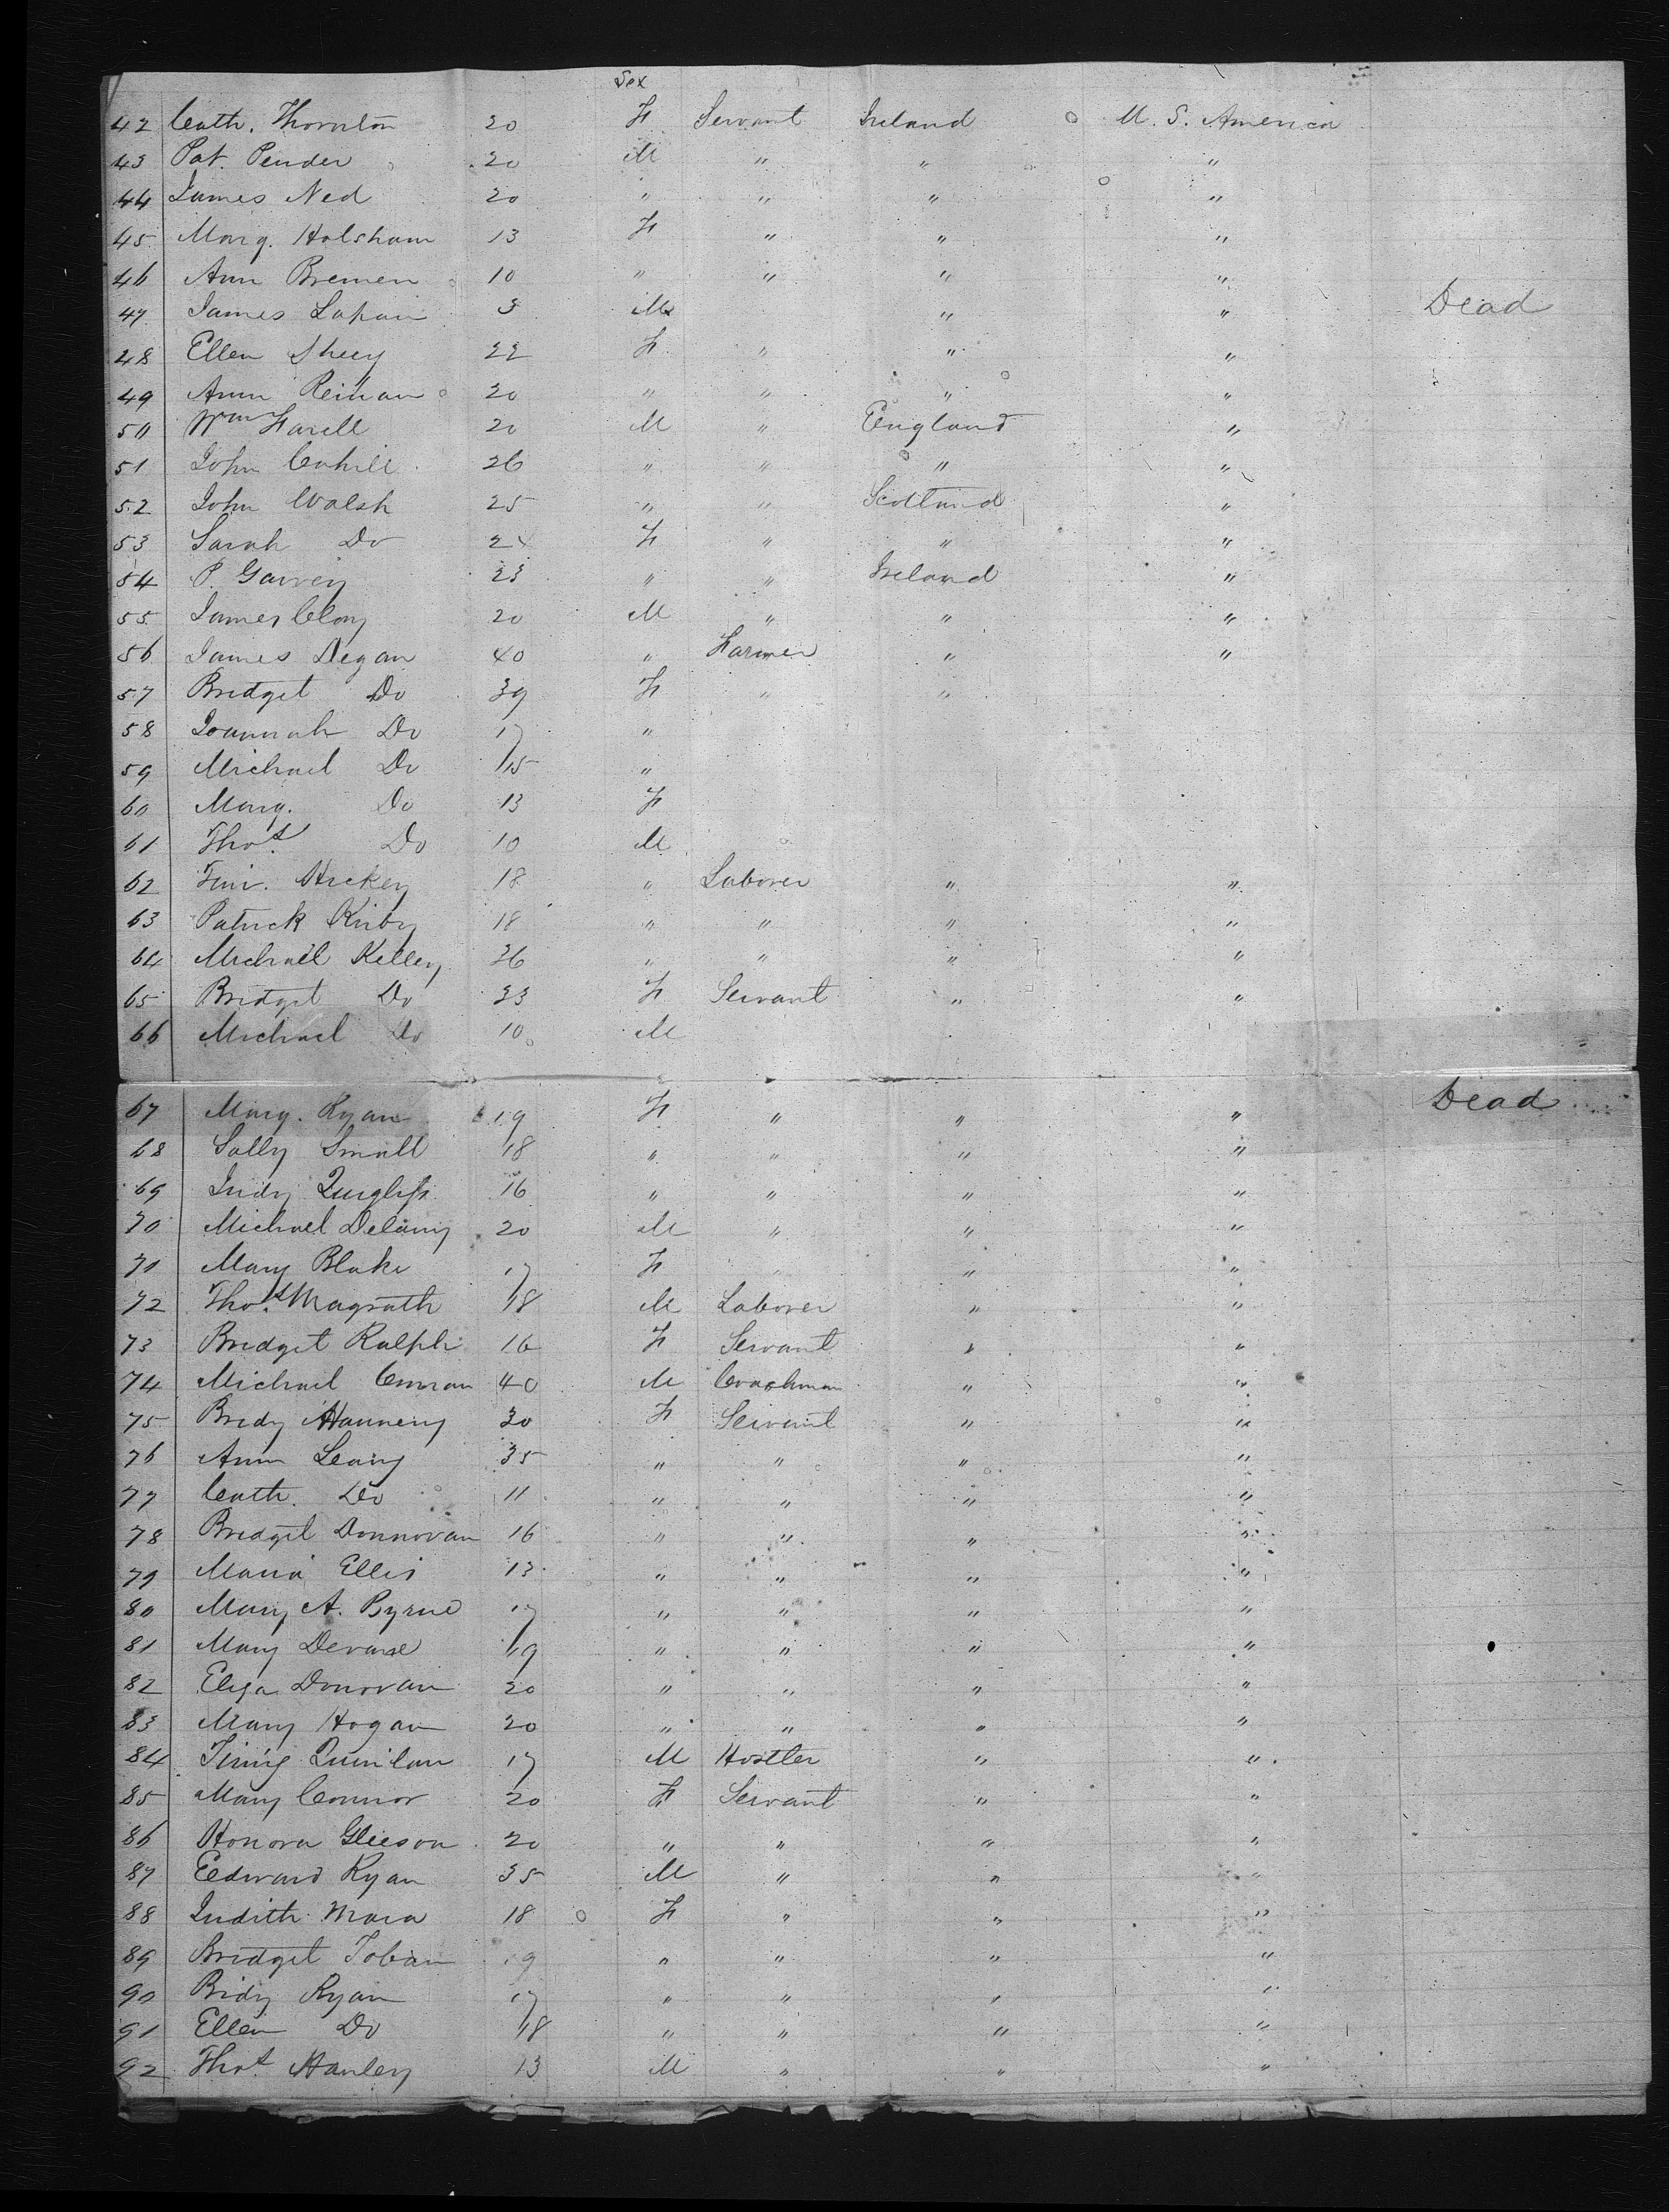 Sex
42 Cath. Thornton 20 F Servant Ireland U. S. America
43 Pat. Pender 20 M " " "
44 James Ned 20 " " " "
45 Marg. Holsham 13 F " " "
46 Ann Bremen 10 " " " "
47 James 3 M " " Dead
48 Ellen Sheey 22 F " " "
49 Ann 20 " " " "
50 Wm Farell 20 M " England "
51 John Cahill 26 " " " "
52 John Walsh 25 " " Scotland "
53 Sarah Do 24 F " " "
54 P. Garvey 23 " " Ireland "
55 James Clony 20 M " " "
56 James Degan 40 " Farmer " "
57 Bridget Do 39 F " "
58 Joannah Do 17 "
59 Michael Do 15 "
60 Marg. Do 13 F
61 Thos Do 10 M
62 Tim. Hickey 18 " Laborer " "
63 Patrick Kirby 18 " " " "
64 Michael Kelley 26 " " " "
65 Bridget Do 23 F Servant " "
66 Michael Do 10 M
67 Marg. Ryan 19 F " " " Dead
68 Sally Small 18 " " " "
69 Judy 16 " " " "
70 Michael Delany 20 M " " "
71 Mary Blake 17 F " "
72 Thos Magrath 18 M Laborer " "
73 Bridget Ralph 16 F Servant " "
74 Michael 40 M Coachman " "
75 Bridy Hanneny 30 F Servant " "
76 Ann Leary 35 " " " "
77 Cath. Do 11 " " " "
78 Bridget Donnovan 16 " " " "
79 Maria Ellis 13 " " " "
80 Mary A. Byrne 17 " " " "
81 Mary 19 " " " "
82 Eliza Donovan 20 " " " "
83 Mary Hogan 20 " " " "
84 Timy Quinlan 17 M Hostler " "
85 Mary Connor 20 F Servant " "
86 Honora Gleeson 20 " " " "
87 Edward Ryan 35 M " " "
88 Judith Mara 18 F " " "
89 Bridget Toban 19 " " " "
90 Bidy Ryan 17 " " " "
91 Ellen Do 18 " " " "
92 Thos. Hanley 13 M " " "